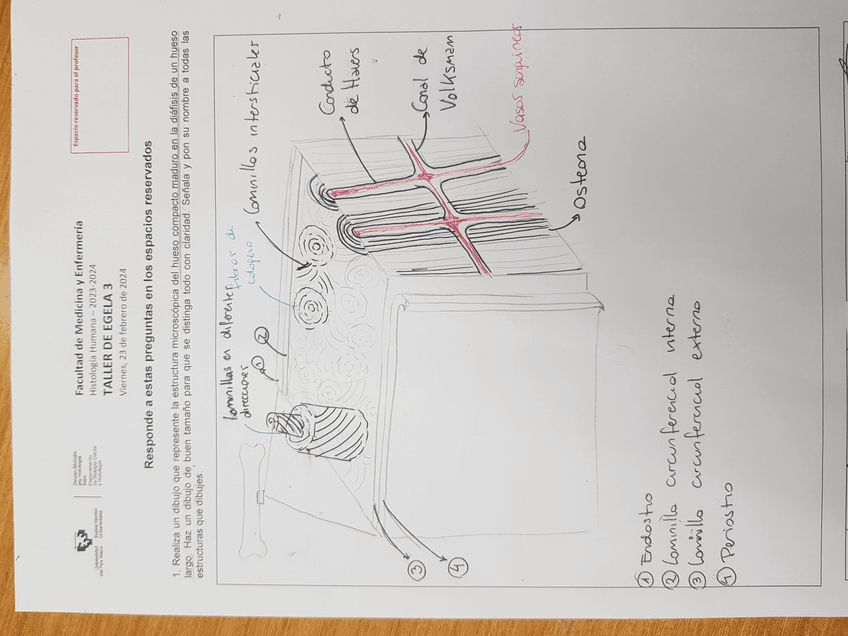 Facultad de Medicina y Enfermería
Histología Humana – 2023-2024
TALLER DE EGELA 3
Viernes, 23 de febrero de 2024
Espacio reservado para el profesor
Responde a estas preguntas en los espacios reservados
1. Realiza un dibujo que represente la estructura microscópica del hueso compacto maduro en la diáfisis de un hueso
largo. Haz un dibujo de buen tamaño para que se distinga todo con claridad. Señala y pon su nombre a todas las
estructuras que dibujes.
Laminillas en diferentes
direcciones
fibras de
colágeno
Laminillas intersticiales
Conducto
de Havers
Canal de
Volksman
Vasos sanguíneos
Osteona
1
2
3
4
1 Endostio
2 Laminilla circunferencial interna
3 Laminilla circunferencial externa
4 Periostio